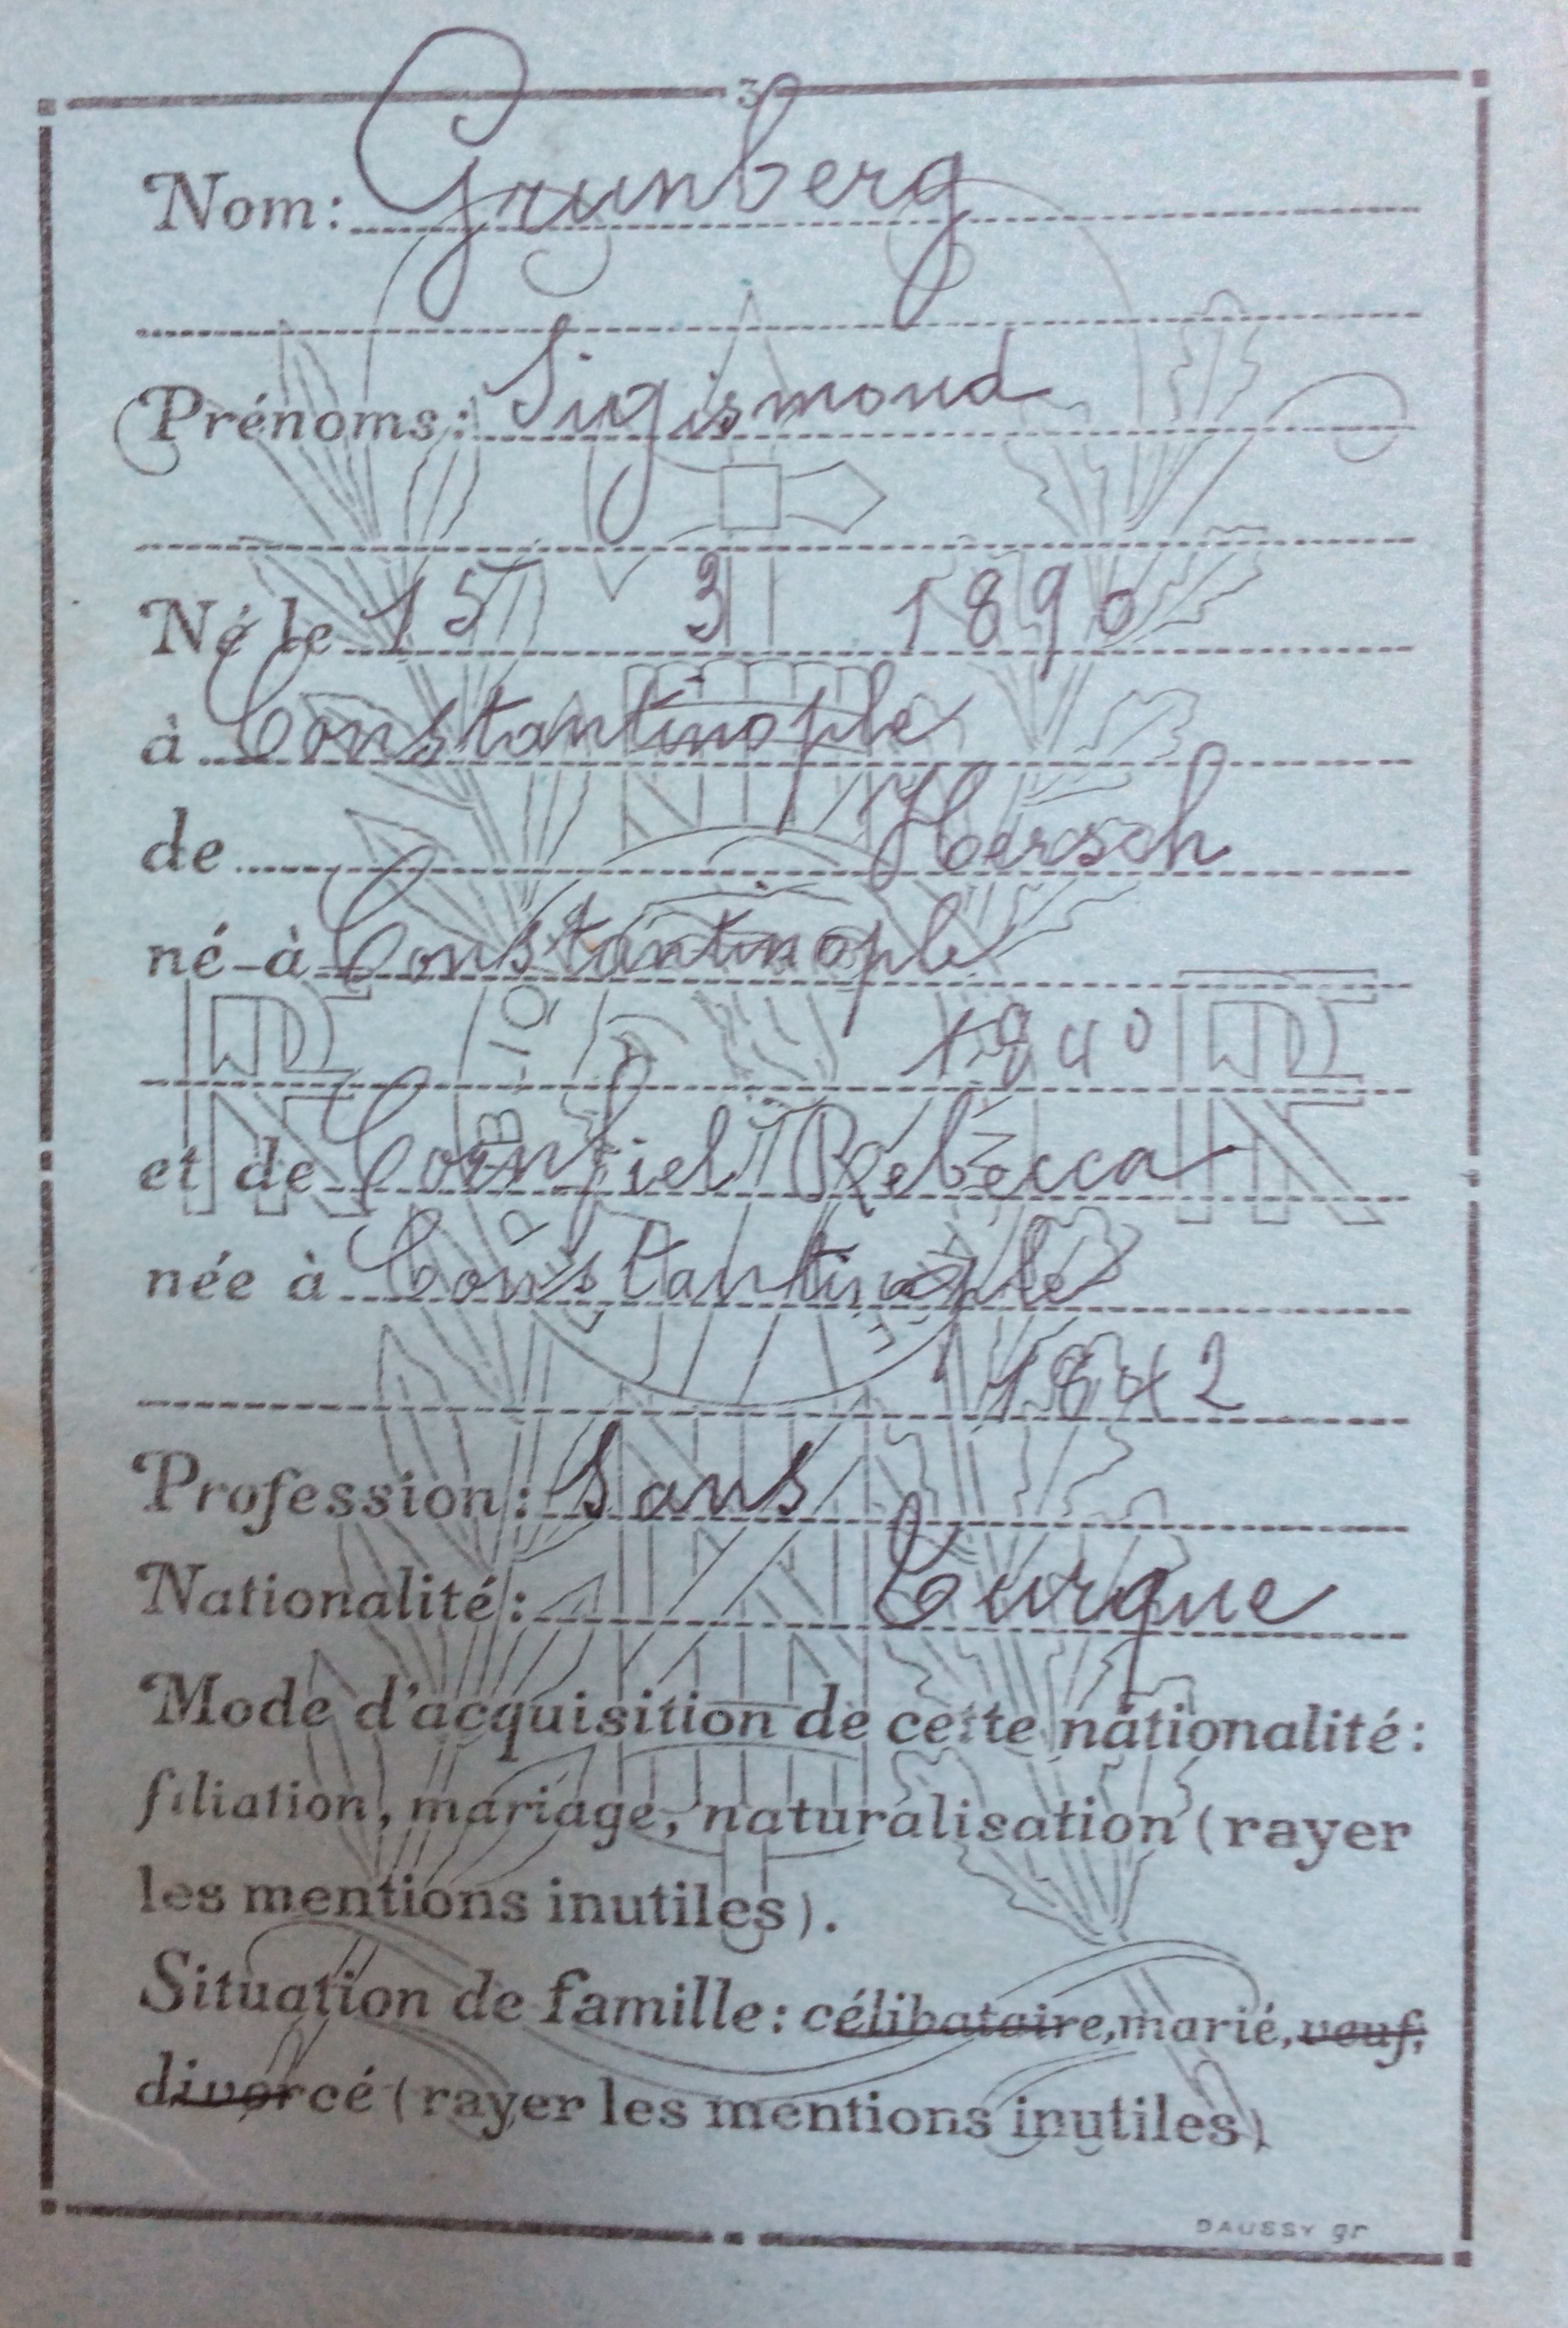 3
Nom: Grunberg
Prénoms: Sigismond
Né le 15 3 1890
à Constantinople
de Hersch
né à Constantinople
1840
et de Rebecca
née à Constantinople
1842
Profession: Sans
Nationalité: Turque
Mode d'acquisition de cette nationalité:
filiation, mariage, naturalisation (rayer
les mentions inutiles).
Situation de famille: célibataire, marié, veuf,
divorcé (rayer les mentions inutiles)
DAUSSY gr